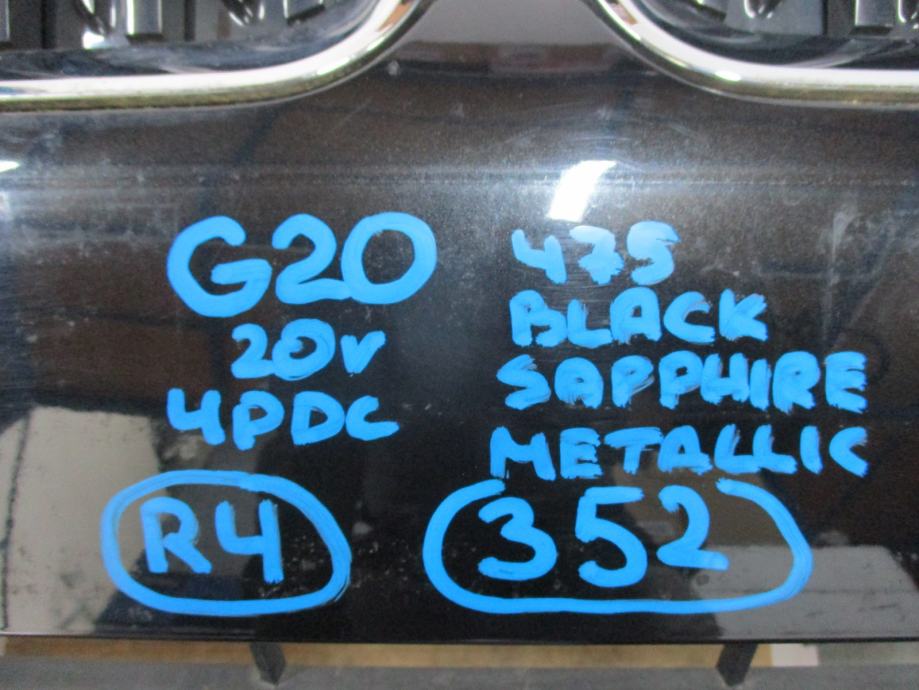 G20
20V
4PDC
R4
475
BLACK
SAPPHIRE
METALLIC
352